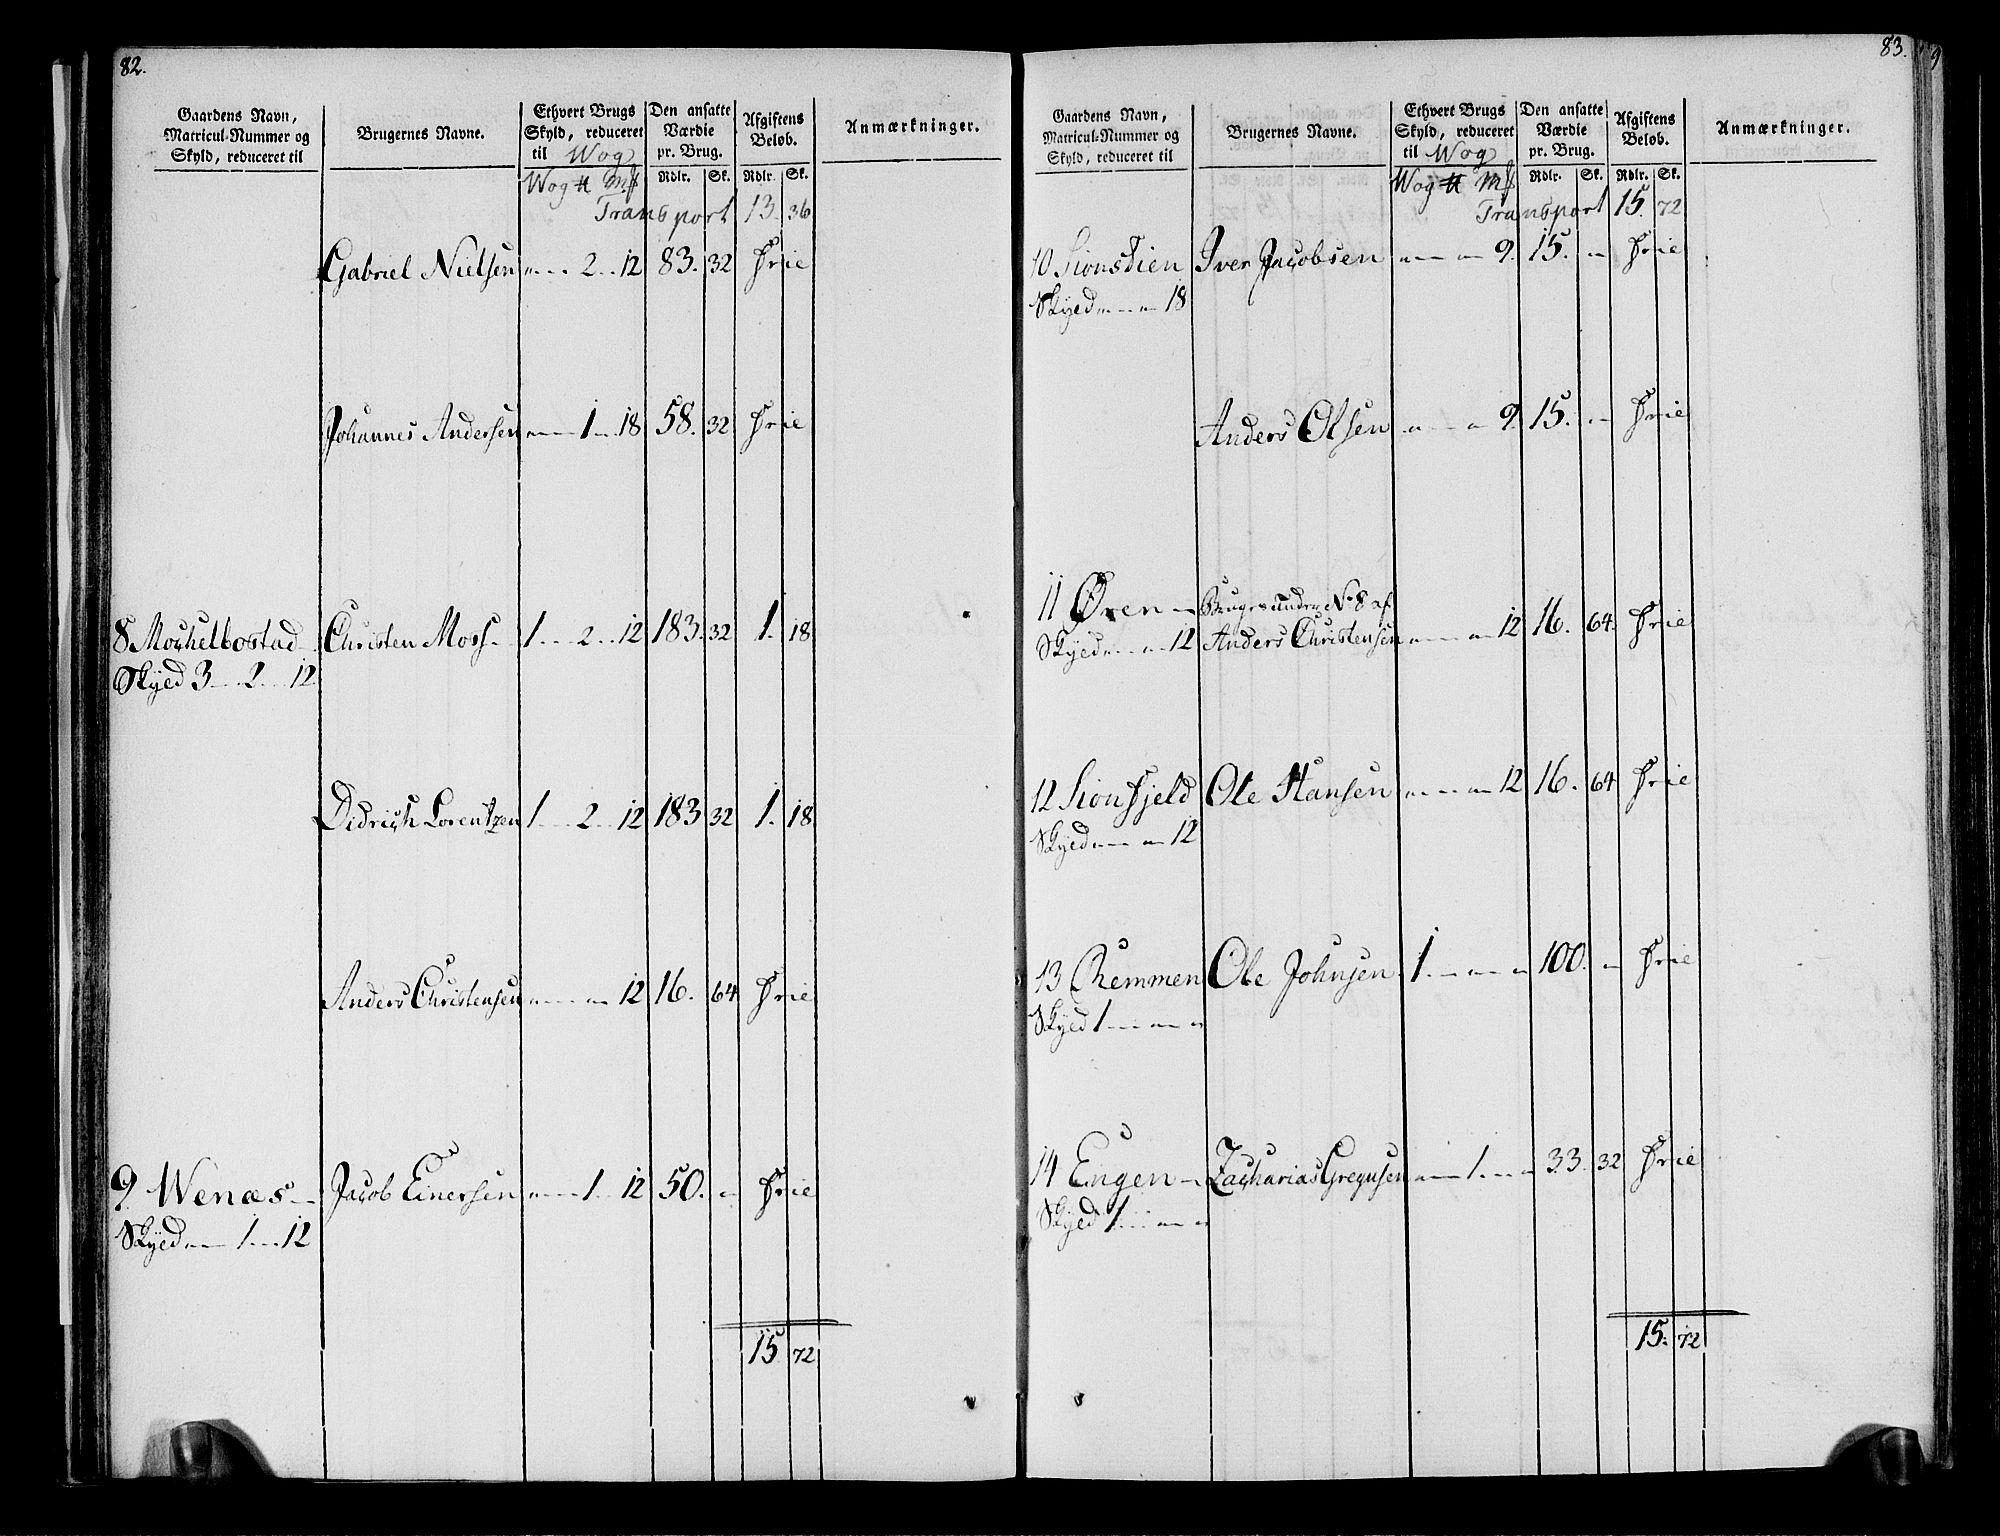 82.
Gaardens Navn, Matricul-Nummer og Skyld, reduceret til
Brugernes Navne.
Ethvert Brugs Skyld, reduceret til Wog
Den ansatte Værdie pr. Brug.
Afgiftens Beløb.
Anmærkninger.
Wog ℔ Mk Rdlr. Sk. Rdlr. Sk.
Transport 13. 36
Gabriel Nielsen " 2 12 83. 32 Frie
Johannes Andersen " 1 18 58. 32 Frie
8 Mochelbostad Christen Moss 1 2 12 183. 32 1. 18
Skyld 3 2 12
Didrich Lorentzen 1 2 12 183 32 1. 18
Anders Christensen " " 12 16. 64 Frie
9. Wenæs Jacob Einersen " 1 12 50. " Frie
Skyld " 1 12
15 72
83.
Gaardens Navn, Matricul-Nummer og Skyld, reduceret til
Brugernes Navne.
Ethvert Brugs Skyld, reduceret til Wog
Den ansatte Værdie pr. Brug.
Afgiftens Beløb.
Anmærkninger.
Wog ℔ Mk Rdlr. Sk. Rdlr. Sk.
Transport 15. 72
10 Sionstien Iver Jacobsen " " 9. 15. " Frie
Skyld " " 18
Anders Olsen " " 9. 15. " Frie
11 Øren Bruges under No 8 af
Skyld " " 12 Anders Christensen " " 12 16. 64. Frie
12 Sionfjeld Ole Hansen " " 12 16. 64 Frie
Skyld " " 12
13 Remmen Ole Johnsen 1. " " 100. " Frie
Skyld 1 " "
14 Engen Zacharias Gregusen " 1. " 33. 32 Frie
Skyld 1 " "
15. 72